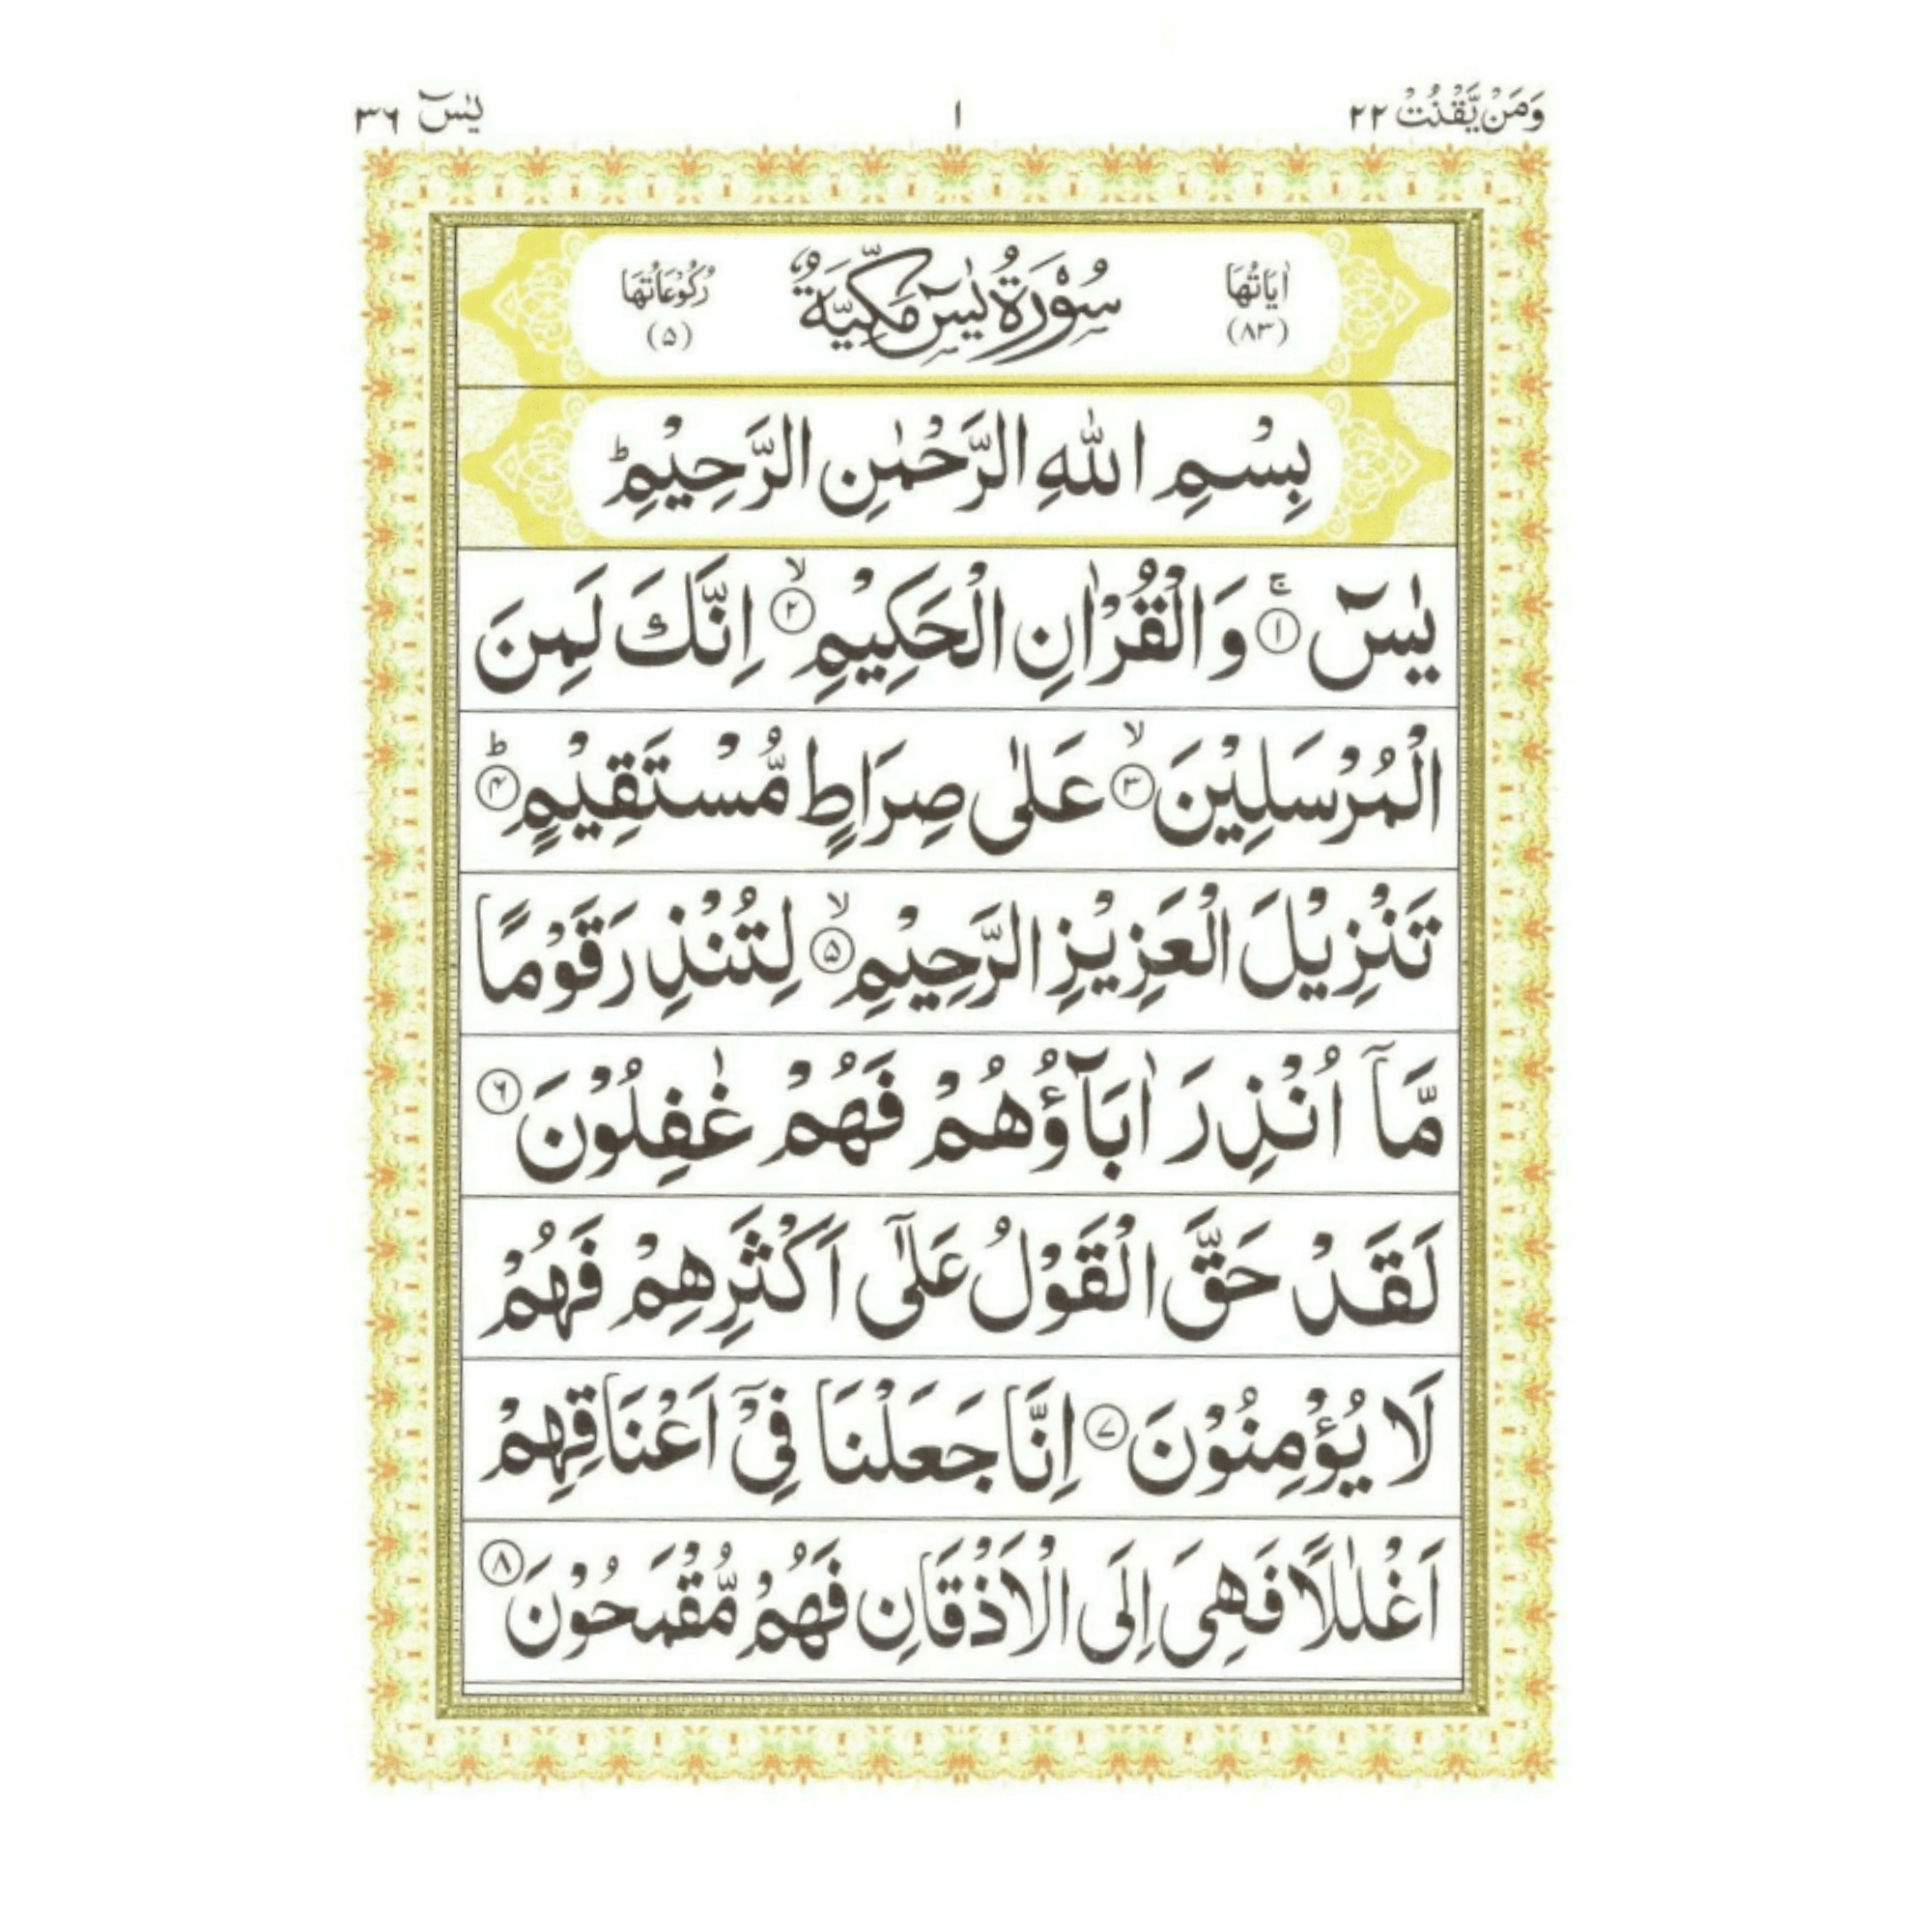 وَمَنْ يَّقْنُتْ ٢٢
١
يٰسٓ ٣٦
اٰيَاتُهَا (٨٣)
سُوْرَةُ يٰسٓ مَكِّيَّةٌ
رُكُوْعَاتُهَا (۵)
بِسْمِ اللّٰهِ الرَّحْمٰنِ الرَّحِيْمِ ؕ
يٰسٓ ۚ ﴿١﴾ وَالْقُرْاٰنِ الْحَكِيْمِ ۙ ﴿٢﴾ اِنَّكَ لَمِنَ
الْمُرْسَلِيْنَ ۙ ﴿٣﴾ عَلٰى صِرَاطٍ مُّسْتَقِيْمٍ ؕ ﴿۴﴾
تَنْزِيْلَ الْعَزِيْزِ الرَّحِيْمِ ۙ ﴿۵﴾ لِتُنْذِرَ قَوْمًا
مَّاۤ اُنْذِرَ اٰبَآؤُهُمْ فَهُمْ غٰفِلُوْنَ ﴿۶﴾
لَقَدْ حَقَّ الْقَوْلُ عَلٰٓى اَكْثَرِهِمْ فَهُمْ
لَا يُؤْمِنُوْنَ ﴿۷﴾ اِنَّا جَعَلْنَا فِىْۤ اَعْنَاقِهِمْ
اَغْلٰلًا فَهِىَ اِلَى الْاَذْقَانِ فَهُمْ مُّقْمَحُوْنَ ﴿٨﴾